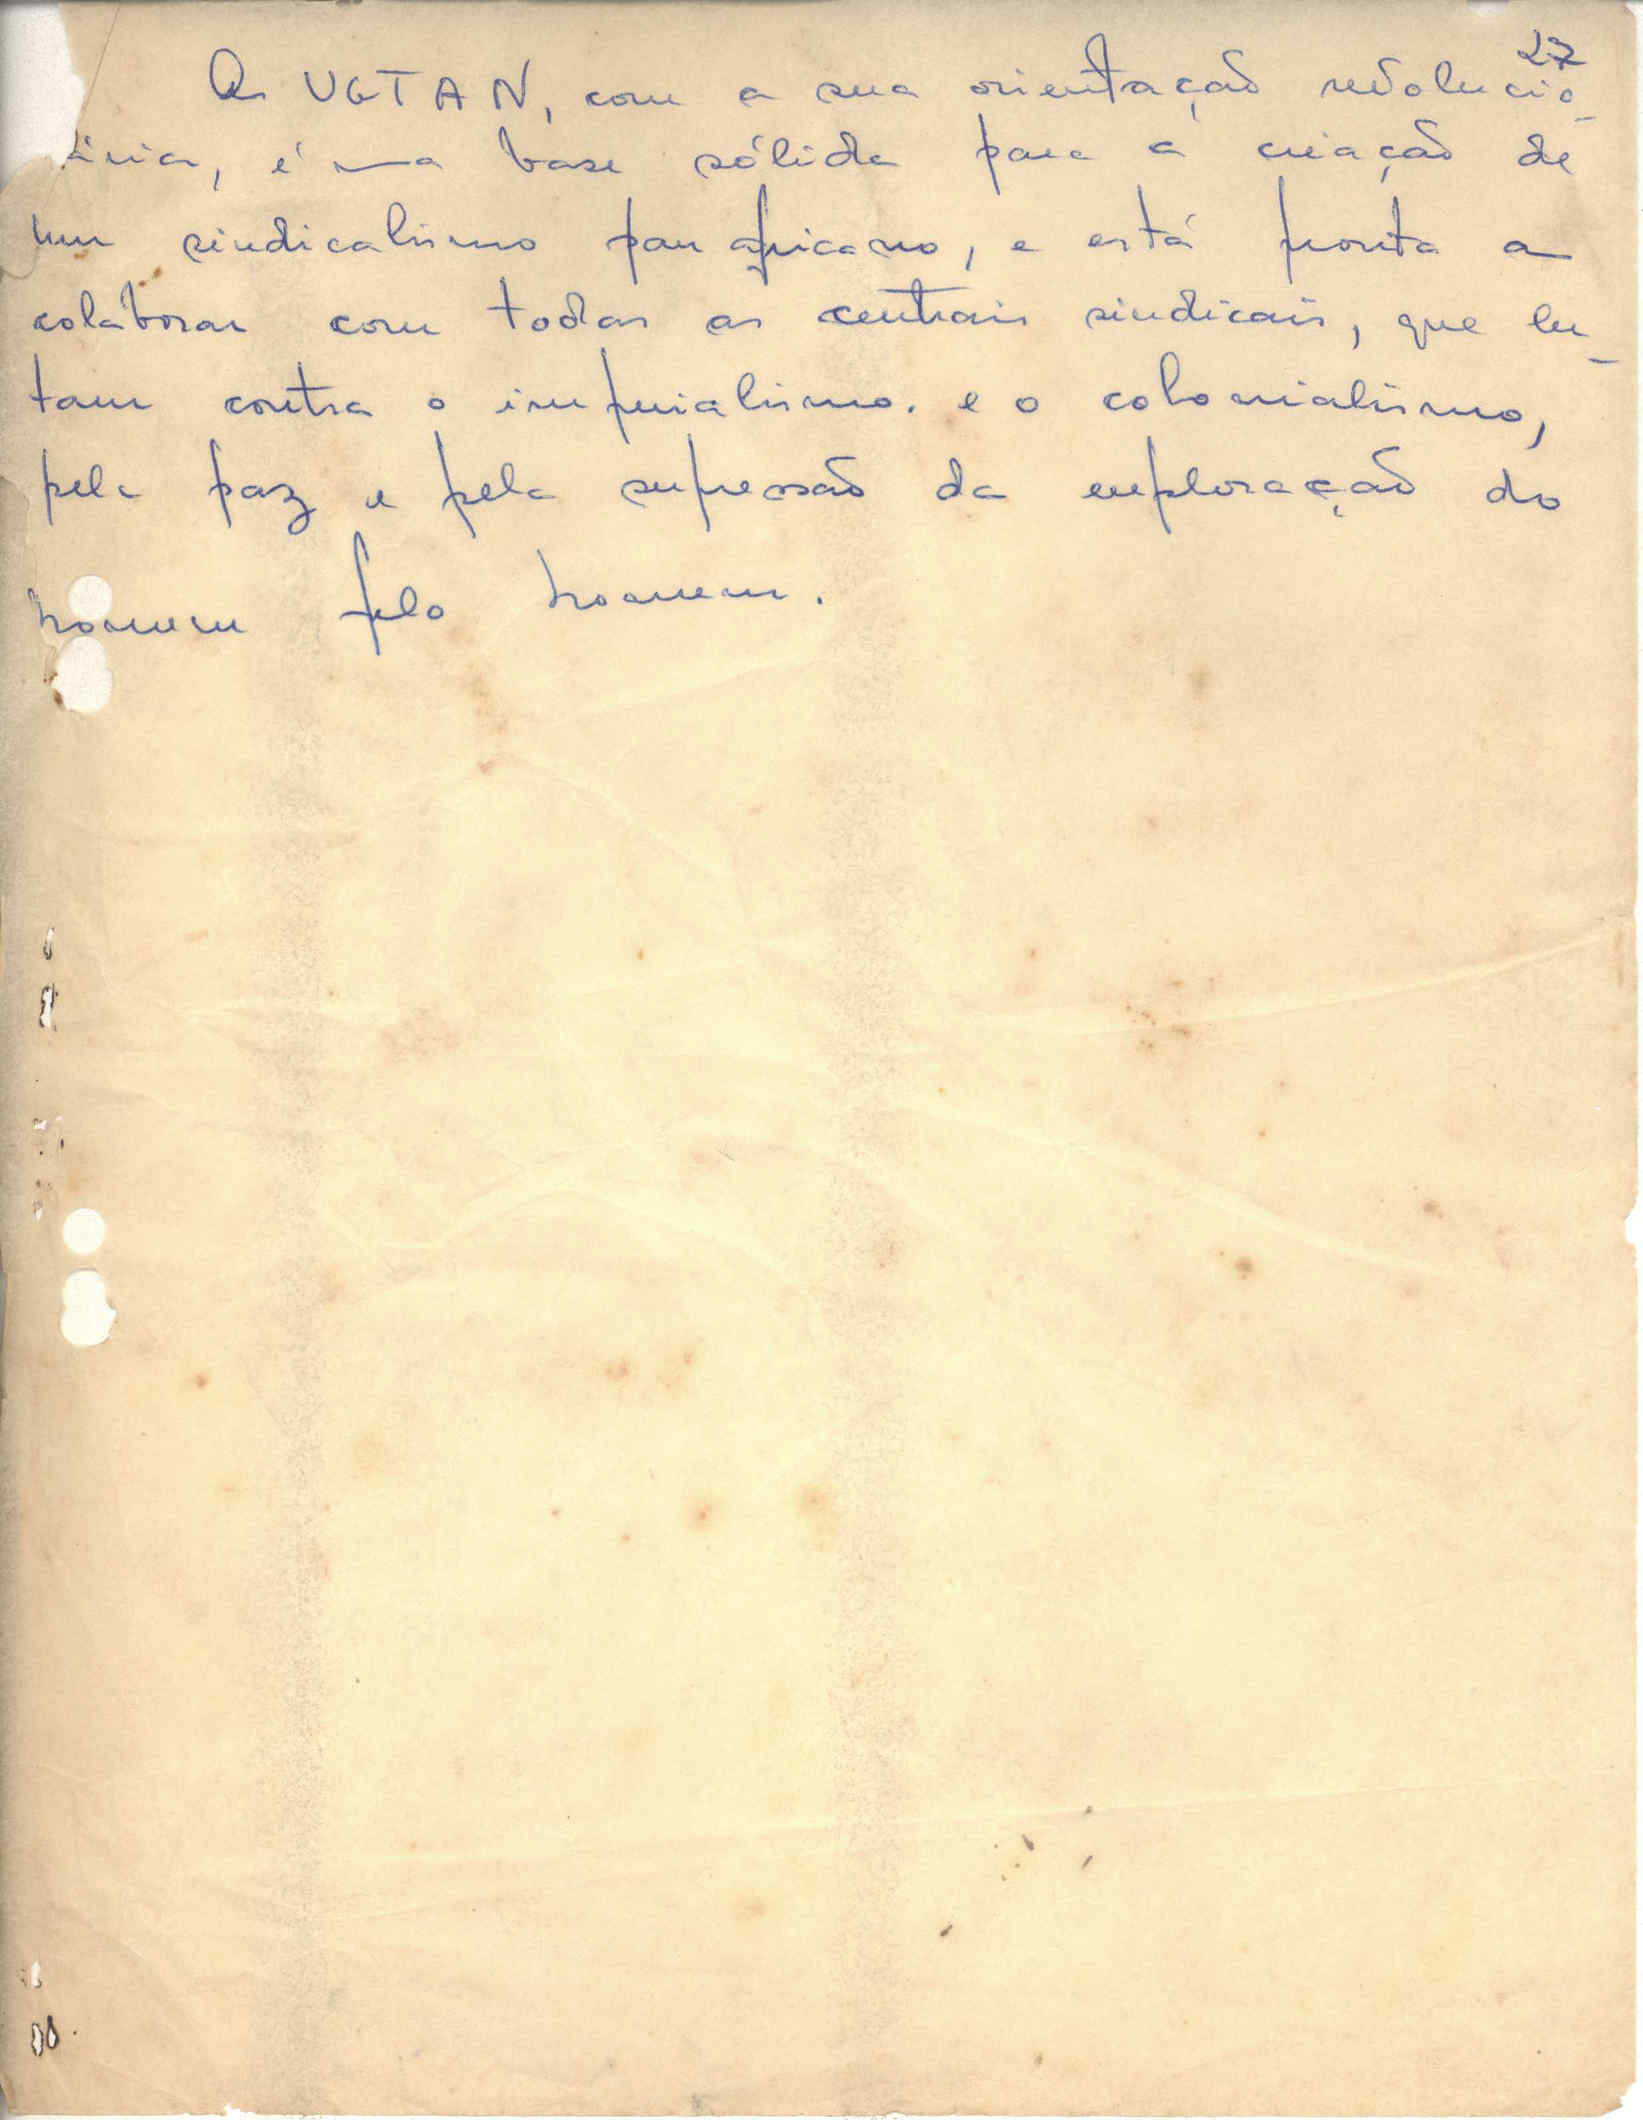 27
A UGTAN, com a sua orientação revolucio-
ária, é uma base sólida para a criação de
um sindicalismo pan africano, e está pronta a
colaborar com todas as centrais sindicais, que lu-
tam contra o imperialismo. e o colonialismo,
pela paz e pela supressão da exploração do
homem pelo homem.